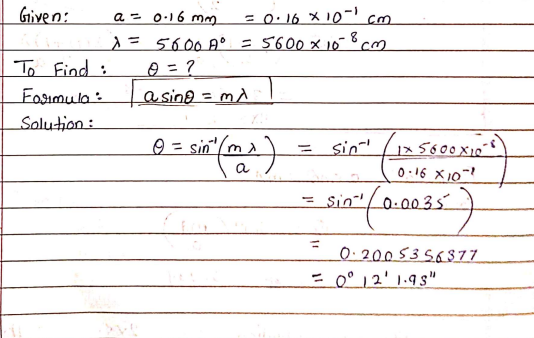 Given: a = 0.16 mm = 0.16 × 10⁻¹ cm
λ = 5600 A° = 5600 × 10⁻⁸ cm
To Find : θ = ?
Formula : a sinθ = mλ
Solution :
θ = sin⁻¹(mλ/a) = sin⁻¹(1 × 5600 × 10⁻⁸ / 0.16 × 10⁻¹)
= sin⁻¹(0.0035)
= 0.2005356377
= 0° 12' 1.93"